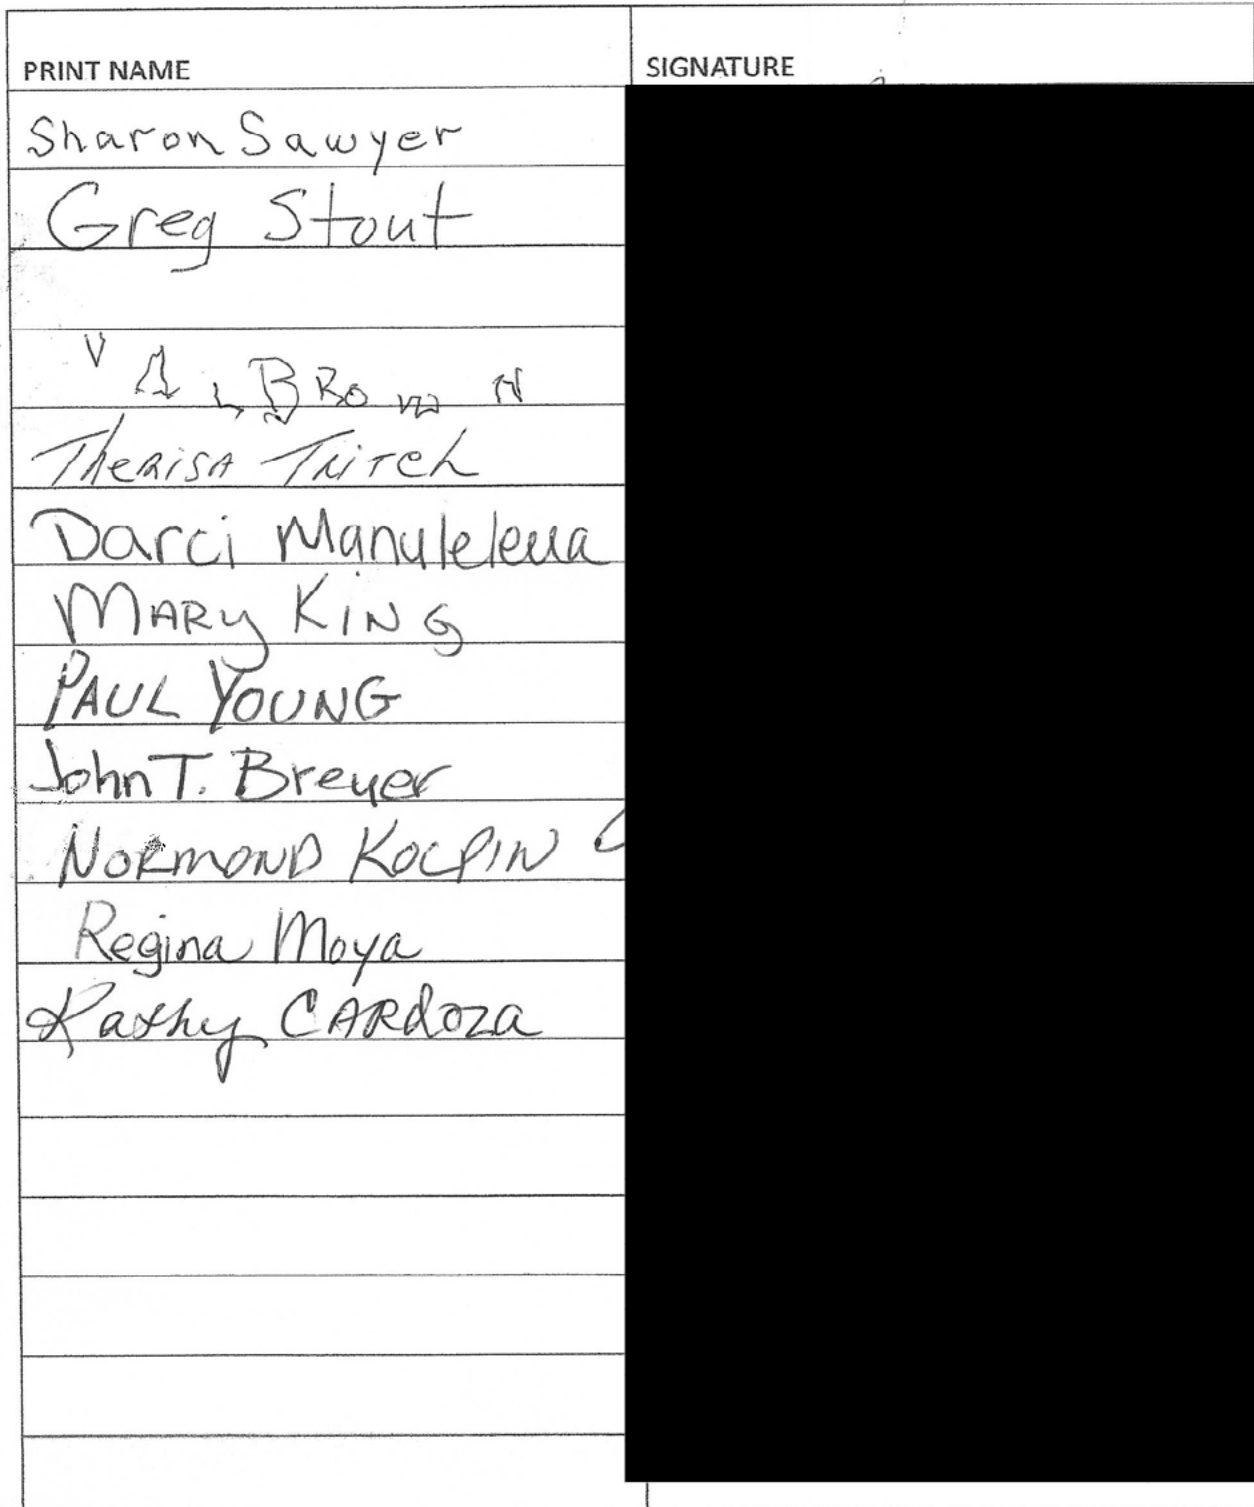 PRINT NAME SIGNATURE
Sharon Sawyer
Greg Stout
V A L BROWN
Therisa Tritch
Darci Manuleleua
MARY KING
PAUL YOUNG
John T. Breyer
NORMOND KOLPIN
Regina Moya
Kathy CARdoza